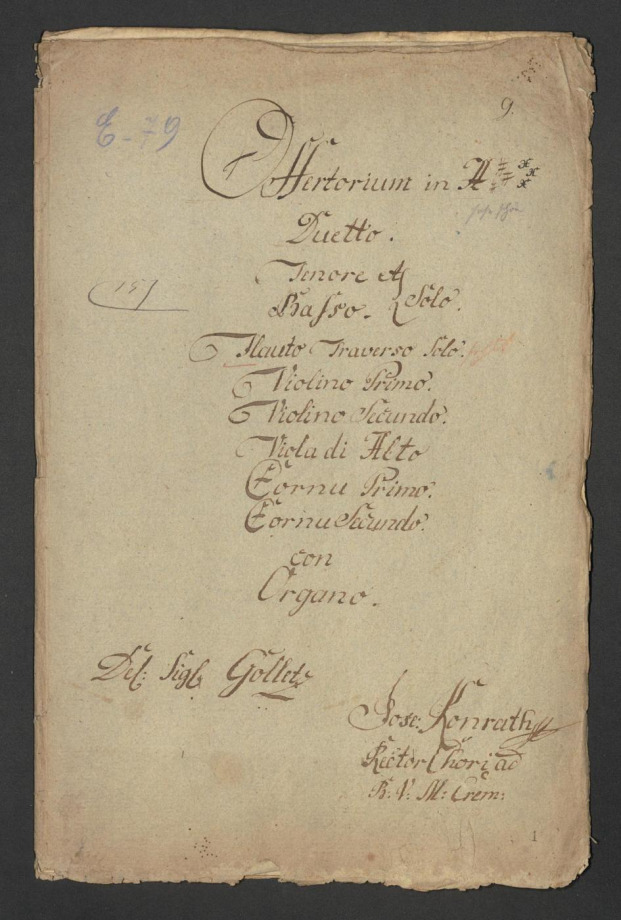 9.
E-79
Offertorium in A
Duetto.
Tenore et
Basso. Solo.
151
Flauto Traverso Solo.
Violino Primo.
Violino Secundo.
Viola di Alto
Cornu Primo.
Cornu Secundo.
con
Organo.
Del: Sigl:
Jose: Konrath
Rector Chori ad
B: V: M: Crem:
1